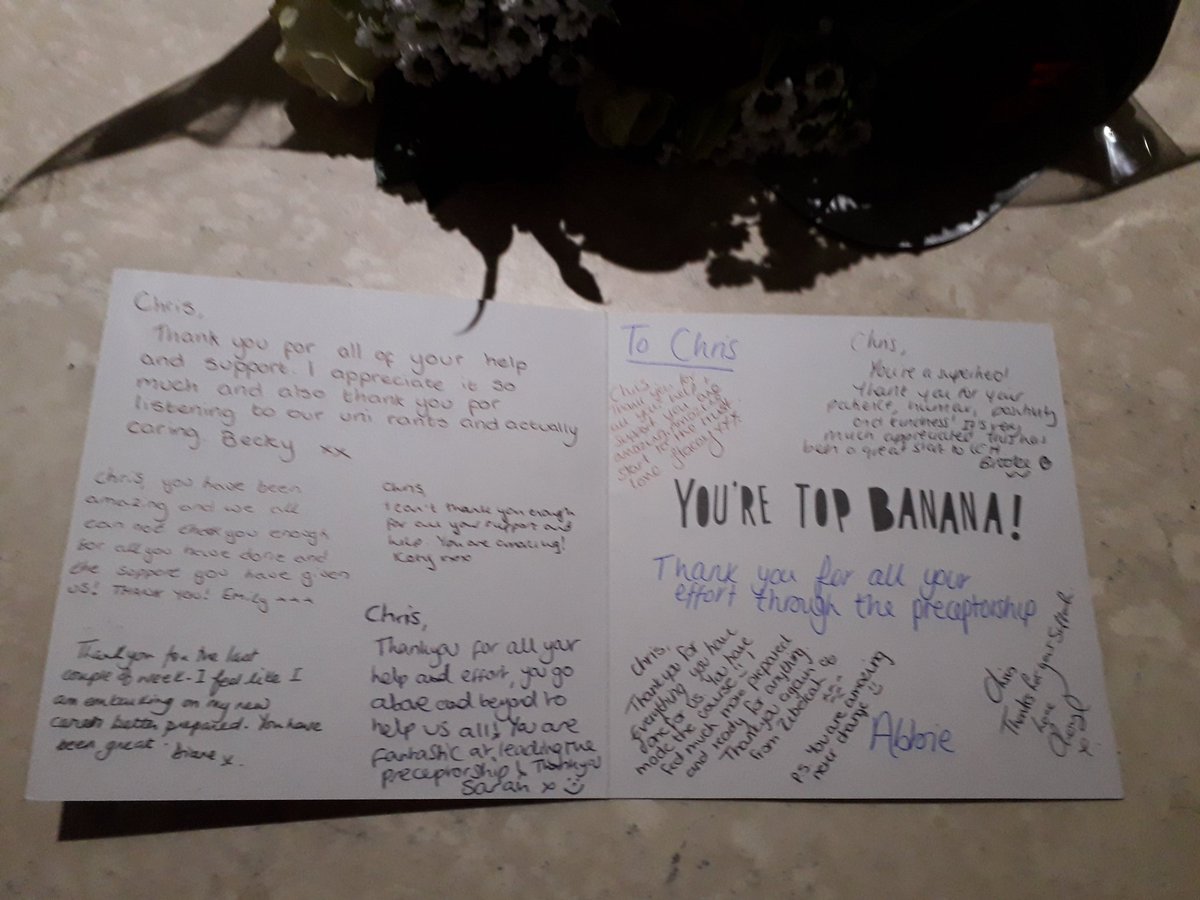 Chris,
Thank you for all of your help
and support. I appreciate it so
much and also thank you for
listening to our uni rants and actually
caring. Becky xx
Chris, you have been
amazing and we all
can not thank you enough
for all you have done and
the support you have given
us! THANK YOU! Emily
Chris,
I can't thank you enough
for all your support and
help. You are amazing!
Katy xxx
Thankyou for the last
couple of week - I feel like I
am embarking on my new
career better prepared. You have
been great x.
Chris,
Thankyou for all your
help and effort, you go
above and beyond to
help us all! You are
fantastic at leading the
preceptorship! Thankyou
Sarah x
To Chris
Chris,
Thank you for
all your help &
support you are
amazing,
start to the trust
love Stacey xxx
Chris,
You're a superhero!
Thank you for your
patience, humour, positivity
and kindness! It's very
much appreciated, this has
been a great start to
Brooke
YOU'RE TOP BANANA!
Thank you for all your
effort through the preceptorship
Chris,
Thank you for
Everything you have
done for us. You have
made the course
feel much more prepared
and ready for anything
Thankyou again
from Rebekah
P.S. You are amazing
never change
Abbie
Chris
Thanks for your support
Love
Cheryl
x